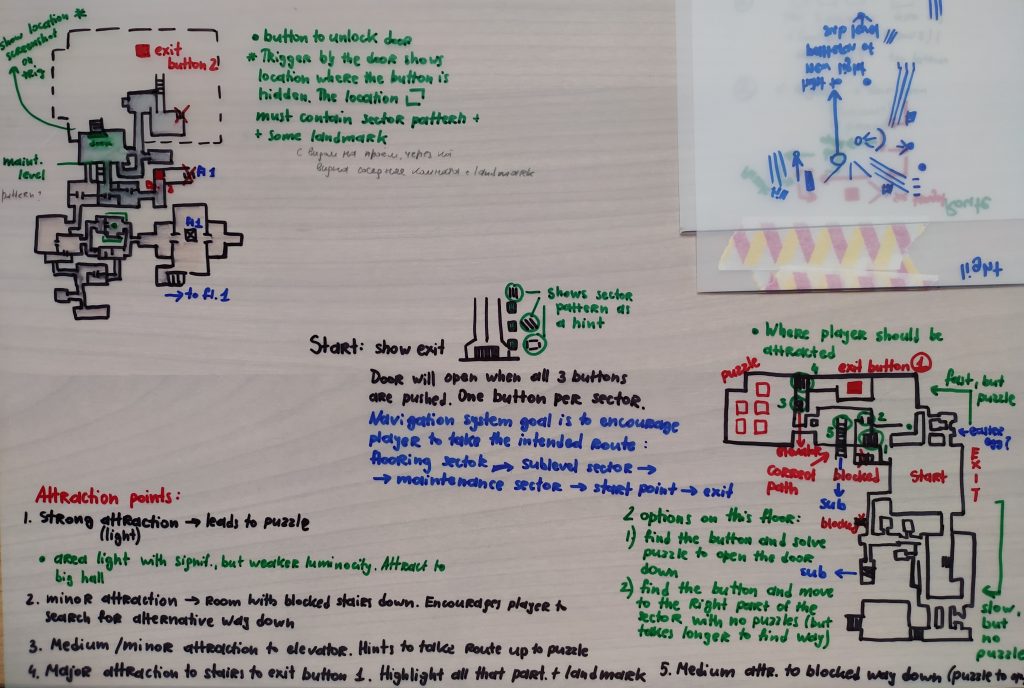 show location *
screenshot
on
trig
exit
button 2
door
maint.
level
pattern?
fl 1
fl.1
→ to fl.1
• button to unlock door
* Trigger by the door shows
location where the button is
hidden. The location
must contain sector pattern +
+ some landmark
с видом на проем, через
видна соседняя комната + landmark
Start: show exit
Shows sector
pattern as
a hint
Door will open when all 3 buttons
are pushed. One button per sector.
Navigation system goal is to encourage
player to take the intended route:
flooring sector → sublevel sector →
→ maintenance sector → start point → exit
Attraction points:
1. Strong attraction → leads to puzzle
(light)
• area light with signif., but weaker luminocity. Attract to
big hall
2. minor attraction → Room with blocked stairs down. Encourages player to
search for alternative way down
3. Medium/minor attraction to elevator. Hints to take route up to puzzle
4. Major attraction to stairs to exit button 1. Highlight all that part. + landmark
5. Medium attr. to blocked way down (puzzle to
• Where player should be
attracted
puzzle
exit button 1
4
3
5
2
1
fast, but
puzzle
easter
egg?
elevator
correct
path
blocked
sub
Start
EXIT
blocked
sub
slow,
but
no
puzzle
2 options on this floor:
1) find the button and solve
puzzle to open the door
down
2) find the button and move
to the right part of the
sector with no puzzles (but
takes longer to find way)
Route